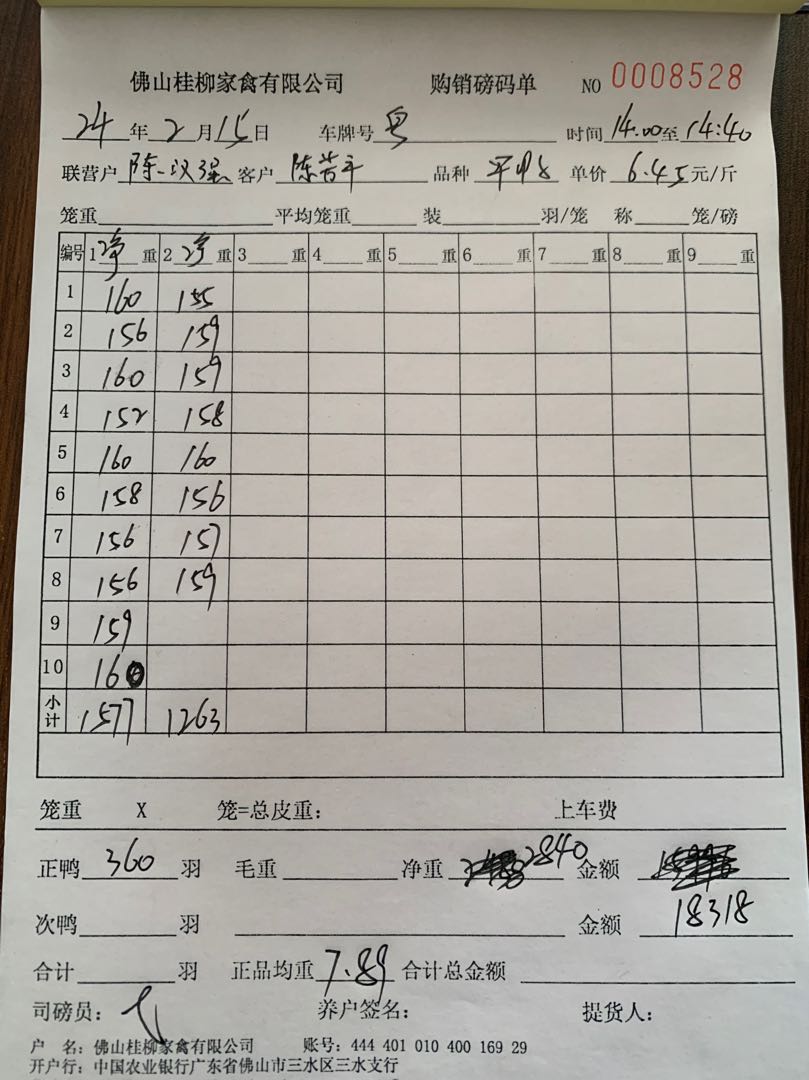 佛山桂柳家禽有限公司 购销磅码单 NO 0008528
24年2月15日 车牌号 粤 时间14.00至14:40
联营户 陈汉强 客户 陈苦平 品种 单价 6.45元/斤
笼重 平均笼重 装 羽/笼 称 笼/磅
编号 1净重 2净重 3重 4重 5重 6重 7重 8重 9重
1 160 155
2 156 159
3 160 159
4 152 158
5 160 160
6 158 156
7 156 157
8 156 159
9 159
10 160
小计 1577 1263
笼重 X 笼=总皮重: 上车费
正鸭 360 羽 毛重 净重 2840 金额
次鸭 羽 金额 18318
合计 羽 正品均重 7.89 合计总金额
司磅员: 养户签名: 提货人:
户 名: 佛山桂柳家禽有限公司 账号: 444 401 010 400 169 29
开户行: 中国农业银行广东省佛山市三水区三水支行